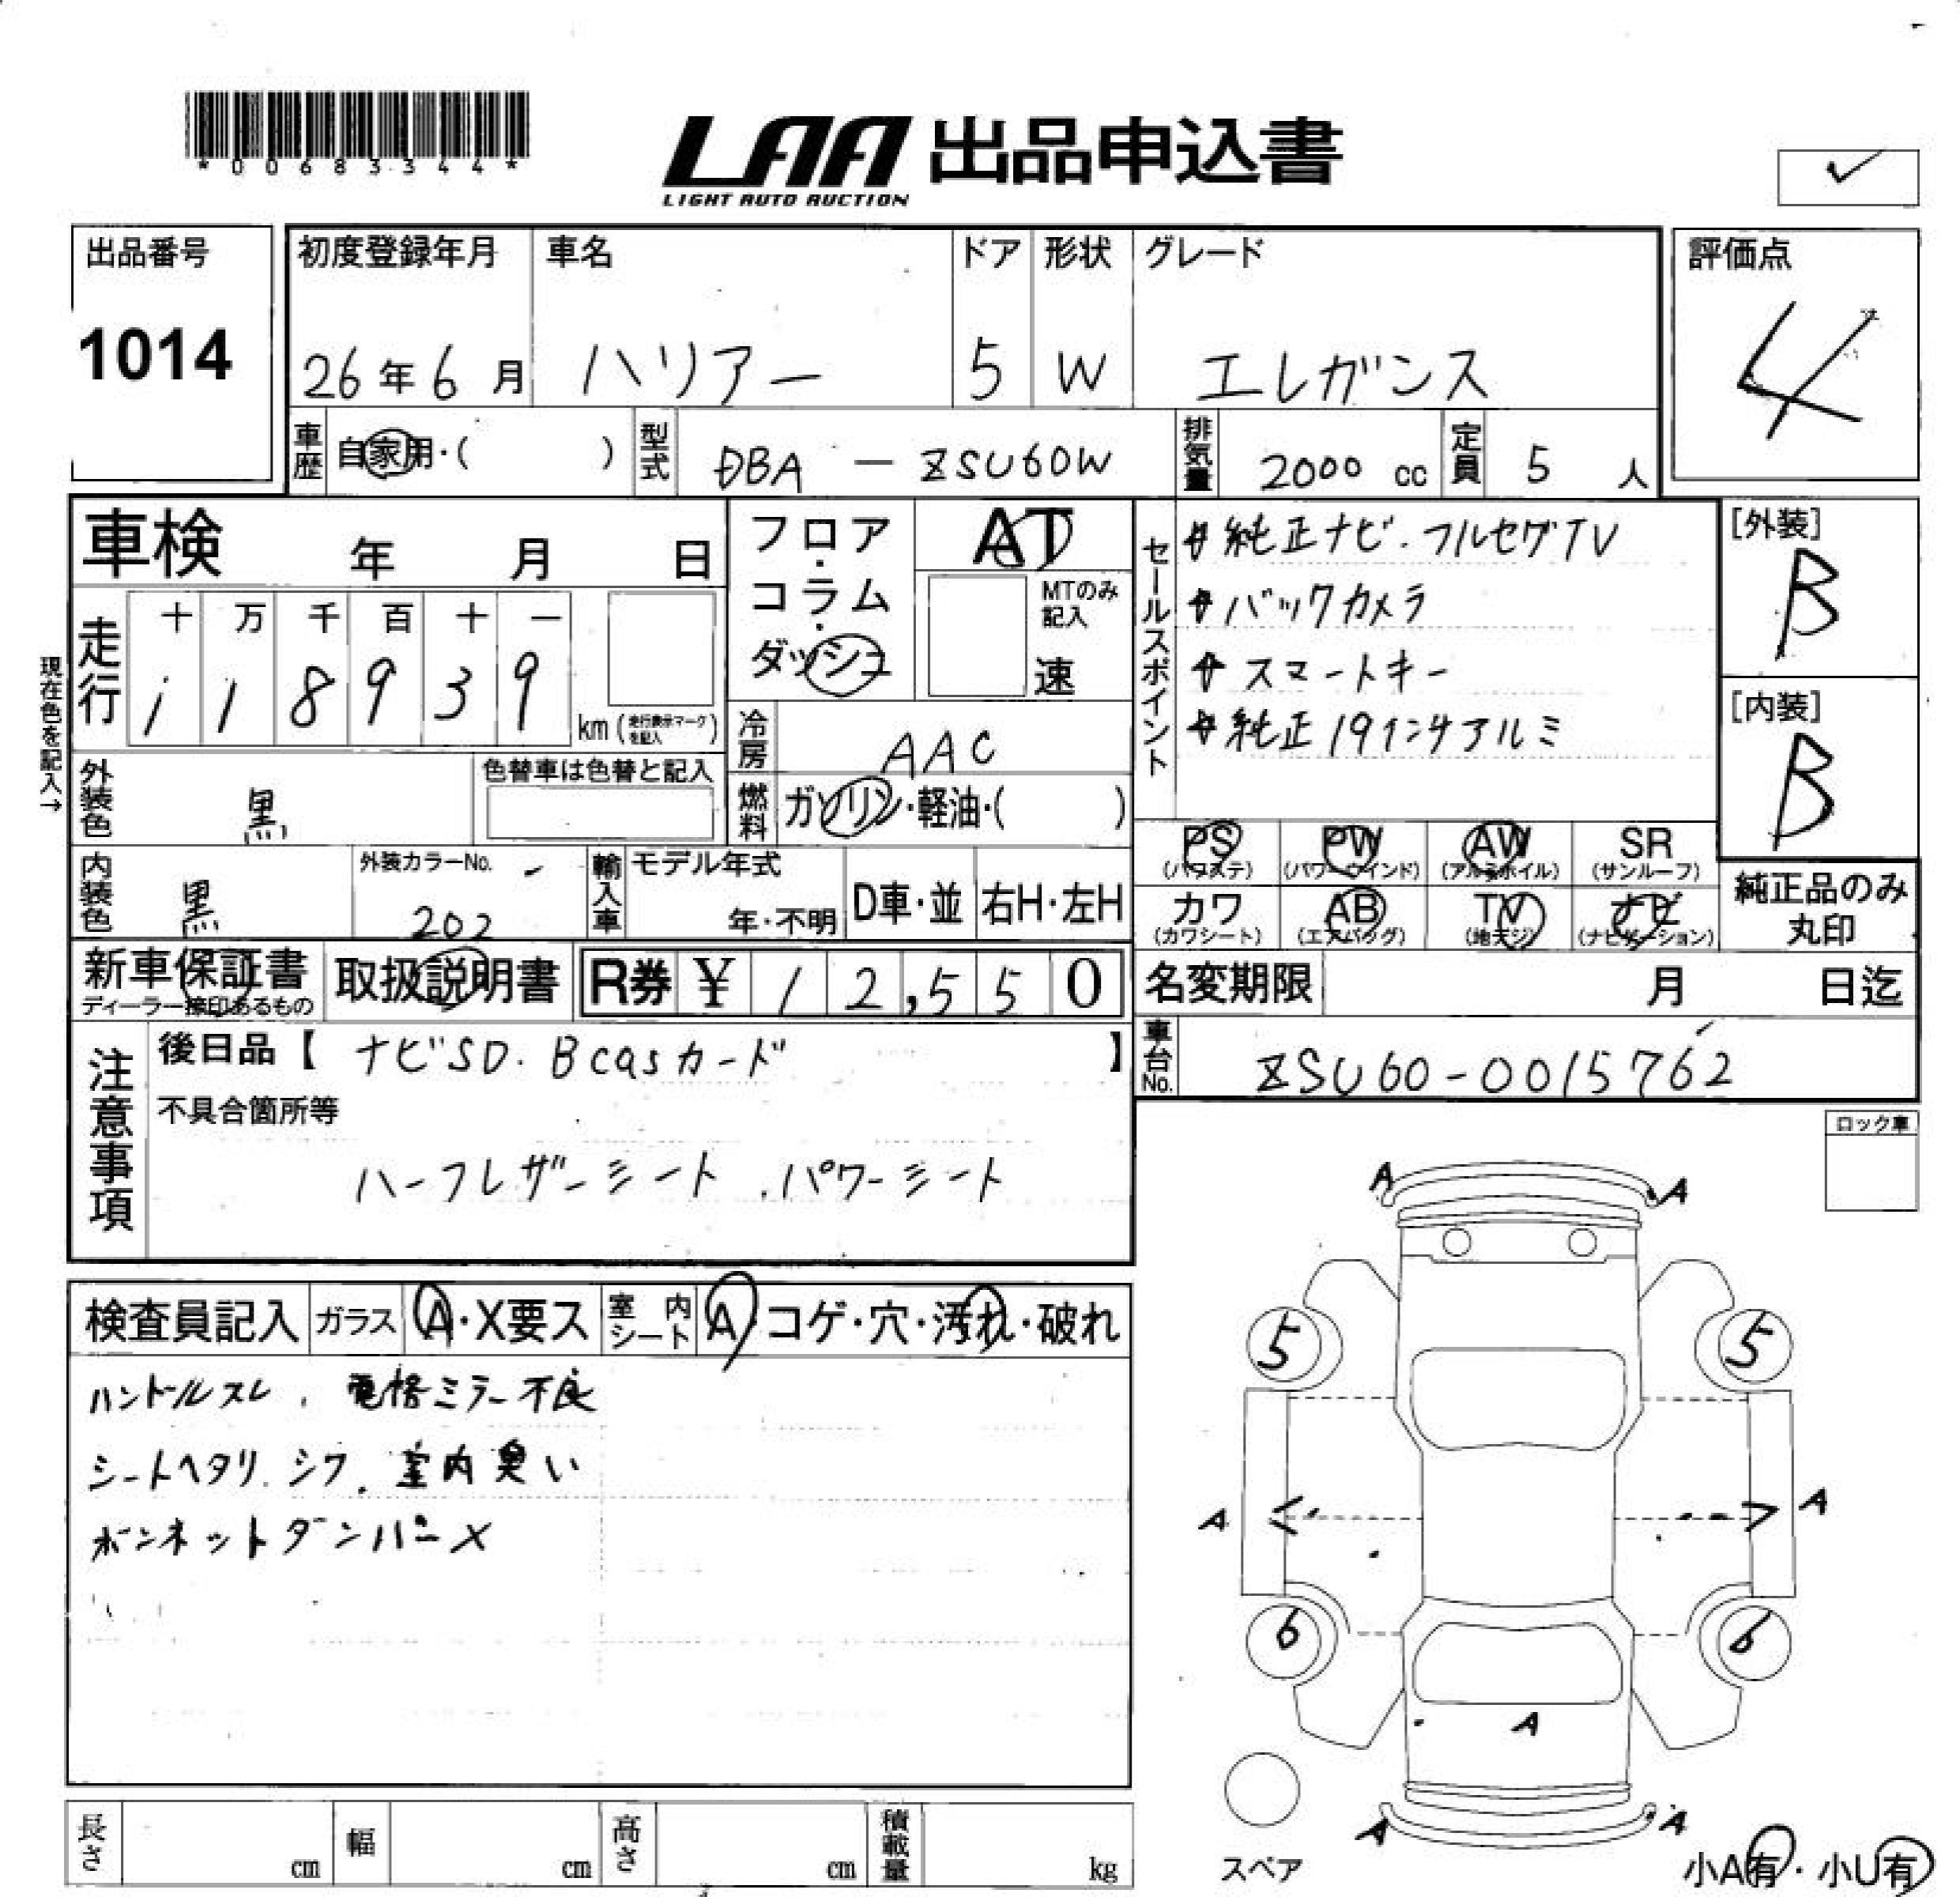 *00683344*
LAA 出品申込書
LIGHT AUTO AUCTION
出品番号
1014
初度登録年月
26年6月
車名
ハリアー
ドア
5
形状
W
グレード
エレガンス
評価点
4
車歴 自家用・( )
型式 DBA － ZSU60W
排気量 2000 cc
定員 5 人
車検 年 月 日
フロア・コラム・ダッシュ
AT
MTのみ記入
速
現在色を記入→
走行
十 万 千 百 十 一
1 1 8 9 3 9
km(走行表示マークを記入)
冷房 AAC
外装色 黒
色替車は色替と記入
燃料 ガソリン・軽油・( )
内装色 黒
外装カラーNo.
202
輸入車 モデル年式
年・不明
D車・並
右H・左H
セールスポイント
純正ナビ・フルセグTV
バックカメラ
スマートキー
純正19インチアルミ
[外装]
B
[内装]
B
PS PW AW SR
(パワステ) (パワーウインド) (アルミホイル) (サンルーフ)
カワ AB TV ナビ
(カワシート) (エアバッグ) (地デジ) (ナビゲーション)
純正品のみ
丸印
新車保証書
ディーラー捺印あるもの
取扱説明書
R券 ¥ 12,550
名変期限 月 日迄
車台No. ZSU60-0015762
注意事項
後日品【 ナビSD. Bcasカード 】
不具合箇所等
ハーフレザーシート . パワーシート
ロック車
検査員記入 ガラス A・X要ス 室内シート A コゲ・穴・汚れ・破れ
ハンドルスレ . 電格ミラー不良
シートヘタリ. シワ. 室内臭い
ボンネットダンパー×
A A
5 5
A A
6 6
A
A A
スペア
小A有・小U有
長さ cm
幅 cm
高さ cm
積載量 kg